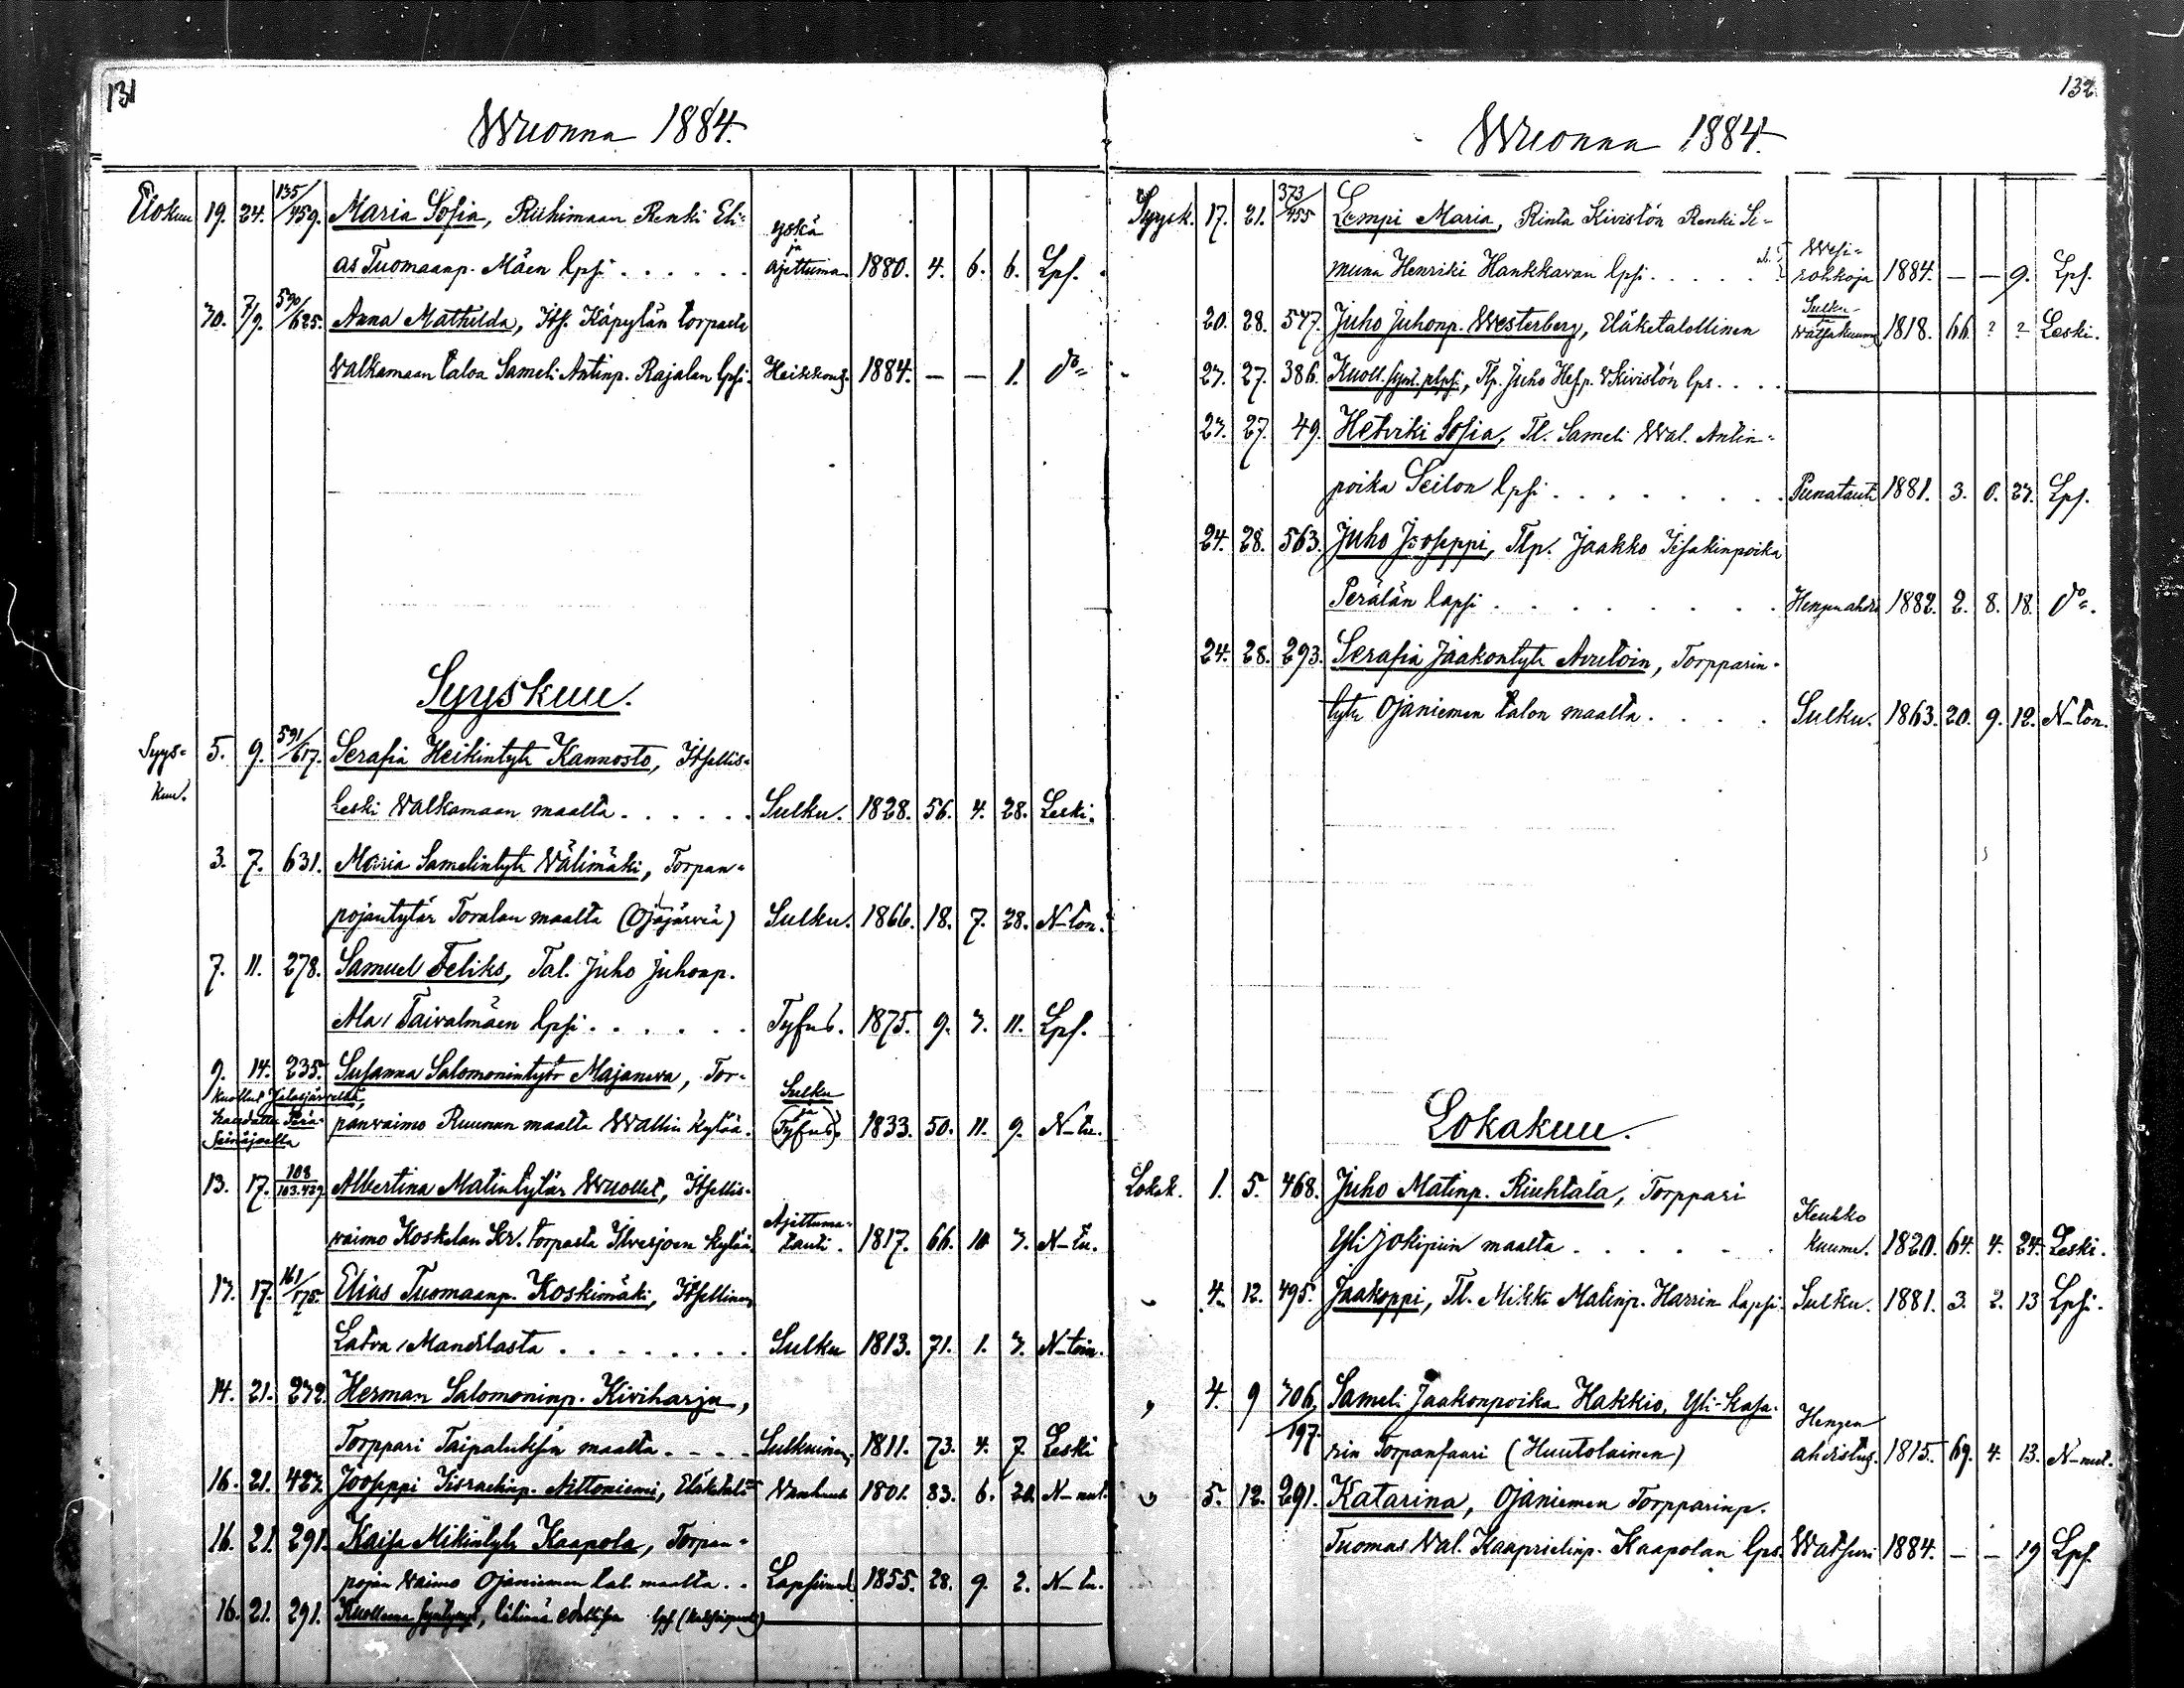 131
Wuonna 1884.
Elokuu 19. 24. 135/459. Maria Sofia, Riihimaan Renki Eli-
as Tuomaanp. Mäen lpsi . . . . . yskä ja Ajettuma. 1880. 4. 6. 6. Lps.
30. 7/9. 590/625. Anna Mathilda, Its. Käpylän torpasta
Walkamaan taloa Sameli Antinp. Rajalan lpsi. Heikkous. 1884. — — 1. do
Syyskuu.
Syys- 5. 9. 591/617. Serafia Heikintytr Kannosto, Itsellis-
kuu. Leski Walkamaan maalta . . . . . . Sulku. 1828. 56. 4. 28. Leski.
3. 7. 631. Maria Samelintytr Wälimäki, Torpan-
pojantytär Toralan maalta (Ojajärviä) Sulku. 1866. 18. 7. 28. N-ton.
7. 11. 278. Samuel Feliks, Tal. Juho Juhonp.
Ala/Taivalmäen lpsi . . . . . . Tyfus. 1875. 9. 3. 11. Lps.
9. 14. 235. Susanna Salomonintytr Majaneva, Tor-
Kuollut Jalasjärvellä,
haudattu Perä-
Seinäjoella
panvaimo Ruunun maalta Wallin kylää. Sulku ja (Tyfus). 1833. 50. 11. 9. N-tu.
13. 17. 108/103.439. Albertina Matintytär Wuollet, Itsellis-
vaimo Koskelan Kr. torpasta Ilvesjoen kylää. Ajettuma-tauti. 1817. 66. 10 3. N-tu.
13. 17. 161/175. Elias Tuomaanp. Koskimäki, Itsellinen
Latva/Mandilasta . . . . . . . . Sulku 1813. 71. 1. 3. N-toin.
14. 21. 232. Herman Salomoninp. Kiviharju,
Torppari Taipaluksen maalta . - - - Sulkuinen. 1811. 73. 4. 7 Leski
16. 21. 427. Jooseppi Iisraelinp. Aittoniemi, Vanhuus 1801. 83. 6. N-nut.
16. 21. 291. Kaisa Mikintytr Kaapola, Torpan-
pojan Waimo Ojaniemen tal. maalta . . 1855. 28. 9. 2. N-tu.
16. 21. 291. Kuollena syntynyt, lps
132
Wuonna 1884.
Syysk. 17. 21. 373/455 Lempi Maria, Rinta Kivistön Renki Si-
muna Henriki Hankkavan lpsi . . . . . Wesi-rohkoja 1884. — — 9. Lps.
20. 28. 547. Juho Juhonp. Westerberg, Eläketalollinen Sulku- Watsakuume 1818. 66. ? ? Leski.
23. 27. 386. Kuoll. synt. plpsi, Tlp. Juho Hes.p. Kivistön lps. . . .
23. 27. 49. Hetviki Sofia, Tl. Sameli Wal. Antin-
poika Seilon lpsi . . . . . . . . Punatauti 1881. 3. 0. 23. Lps.
24. 28. 563. Juho Jooseppi, Tlp. Jaakko Iisakinpoika
Perälän lapsi . . . . . . . . Hengenahdis 1882. 2. 8. 18. do.
24. 28. 293. Serafia Jaakontytr Avutoin, Torpparin-
tytr Ojaniemen talon maalta . . . . Sulku. 1863. 20. 9. 12. N-ton.
Lokakuu.
Lokak. 1. 5. 468. Juho Matinp. Riuhtala, Torppari
Yli Jokipiin maalta . . . . . . Keuhko kuume. 1820. 64. 4. 24. Leski.
4. 12. 495. Jaakoppi, Tl. Mikki Matinp. Harrin lapsi. Sulku. 1881. 3. 2. 13 Lpsi.
4. 9 306/197. Sameli Jaakonpoika Hakkio, Yli-Kasa-
rin Torpanfaari (Huutolainen) Hengen ahdistus. 1815. 69. 4. 13. N-nut.
5. 12. 291. Katarina, Ojaniemen Torpparinp.
Tuomas Wal. Kaaprielinp. Kaapolan lps. Watsuri 1884. — — 19 Lps.